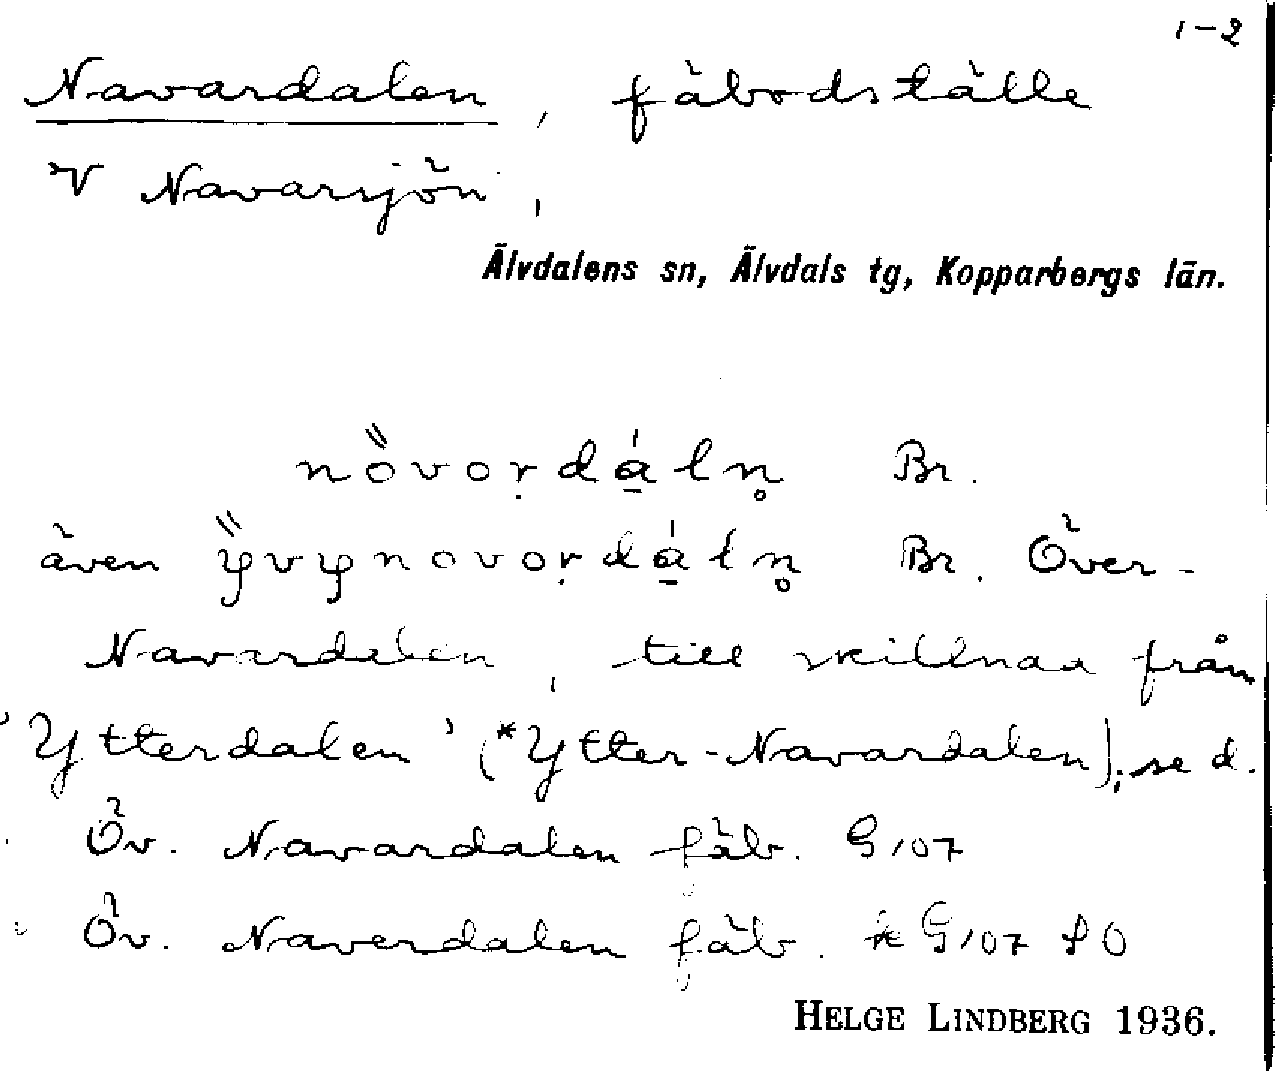 1-2
Navardalen, fäbodställe
V Navarsjön,
Älvdalens sn, Älvdals tg, Kopparbergs län.
növordáln Br.
även Br. Över-
Navardalen, till skillnad från
'Ytterdalen' (*Ytter-Navardalen); se d.
Öv. Navardalen fäb. G107
Öv. Naverdalen fäb. k G107 SO
HELGE LINDBERG 1936.